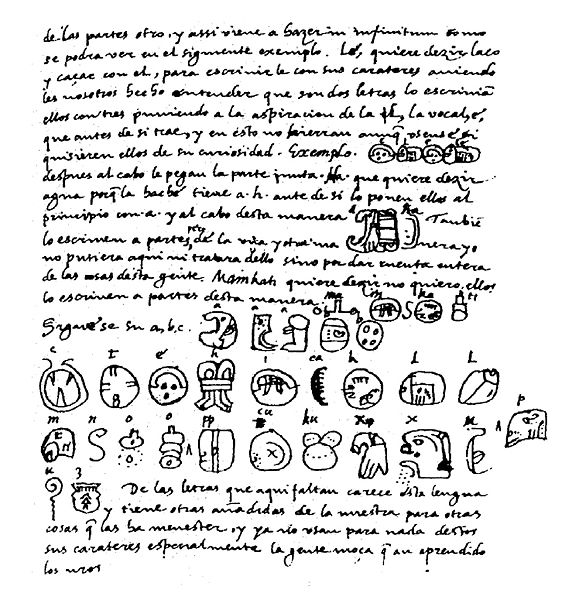 de las partes otro, y assi viene a hazer in infinitum como
se podra ver en el siguiente exemplo. Lé, quiere dezir laço
y caçar con el, para escrivirle con sus carateres aviendo
les nosotros hecho entender que son dos letras lo escrivian
ellos con tres puniendo a la aspiracion de la ł, la vocal, é,
que antes de si trae, y en esto no hierran aunq̃ usense si
quisieren ellos de su curiosidad. Exemplo.
despues al cabo le pegan la parte junta. Ha. que quiere dezir
agua porq̃ la haché tiene a. h. ante de si lo ponen ellos al
principio con a. y al cabo desta manera a ha Tambiẽ
lo escriven a partes pero de la una y otra ma nera yo
no pusiera aqui ni tratara dello sino por dar cuenta entera
de las cosas desta gente. Mainkati quiere dezir no quiero, ellos
lo escriven a partes desta manera: ma i n ka ti
Siguese su a, b, c. a a a b b
c t é h i ca k l l
m n o o pp cu ku x x u p
u z De las letras que aqui faltan carece esta lengua
y tiene otras añadidas de la nuestra para otras
cosas q̃ las ha menester, y ya no usan para nada destos
sus carateres especialmente la gente moça q̃ an aprendido
los nros